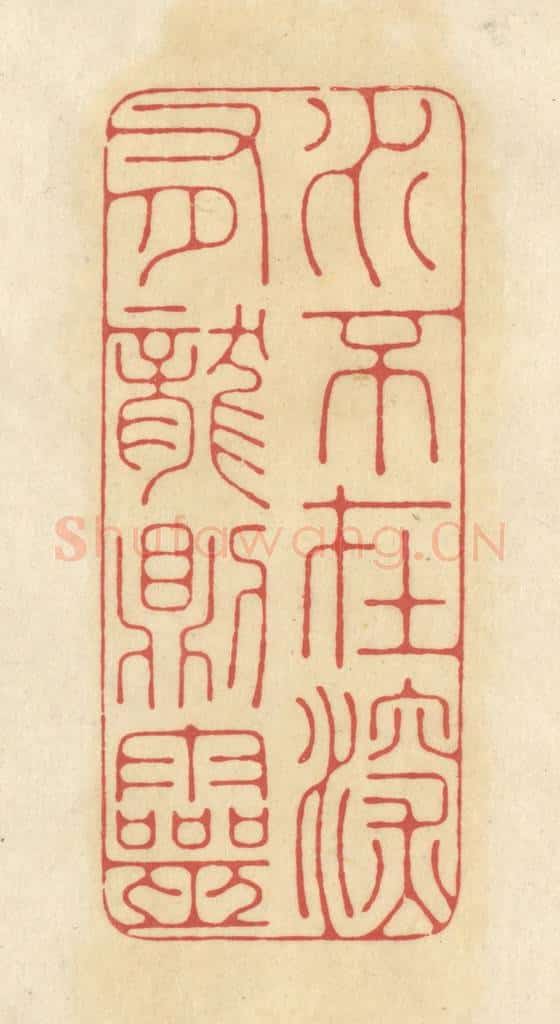 水不在深
有龍則靈
Shufawang.CN